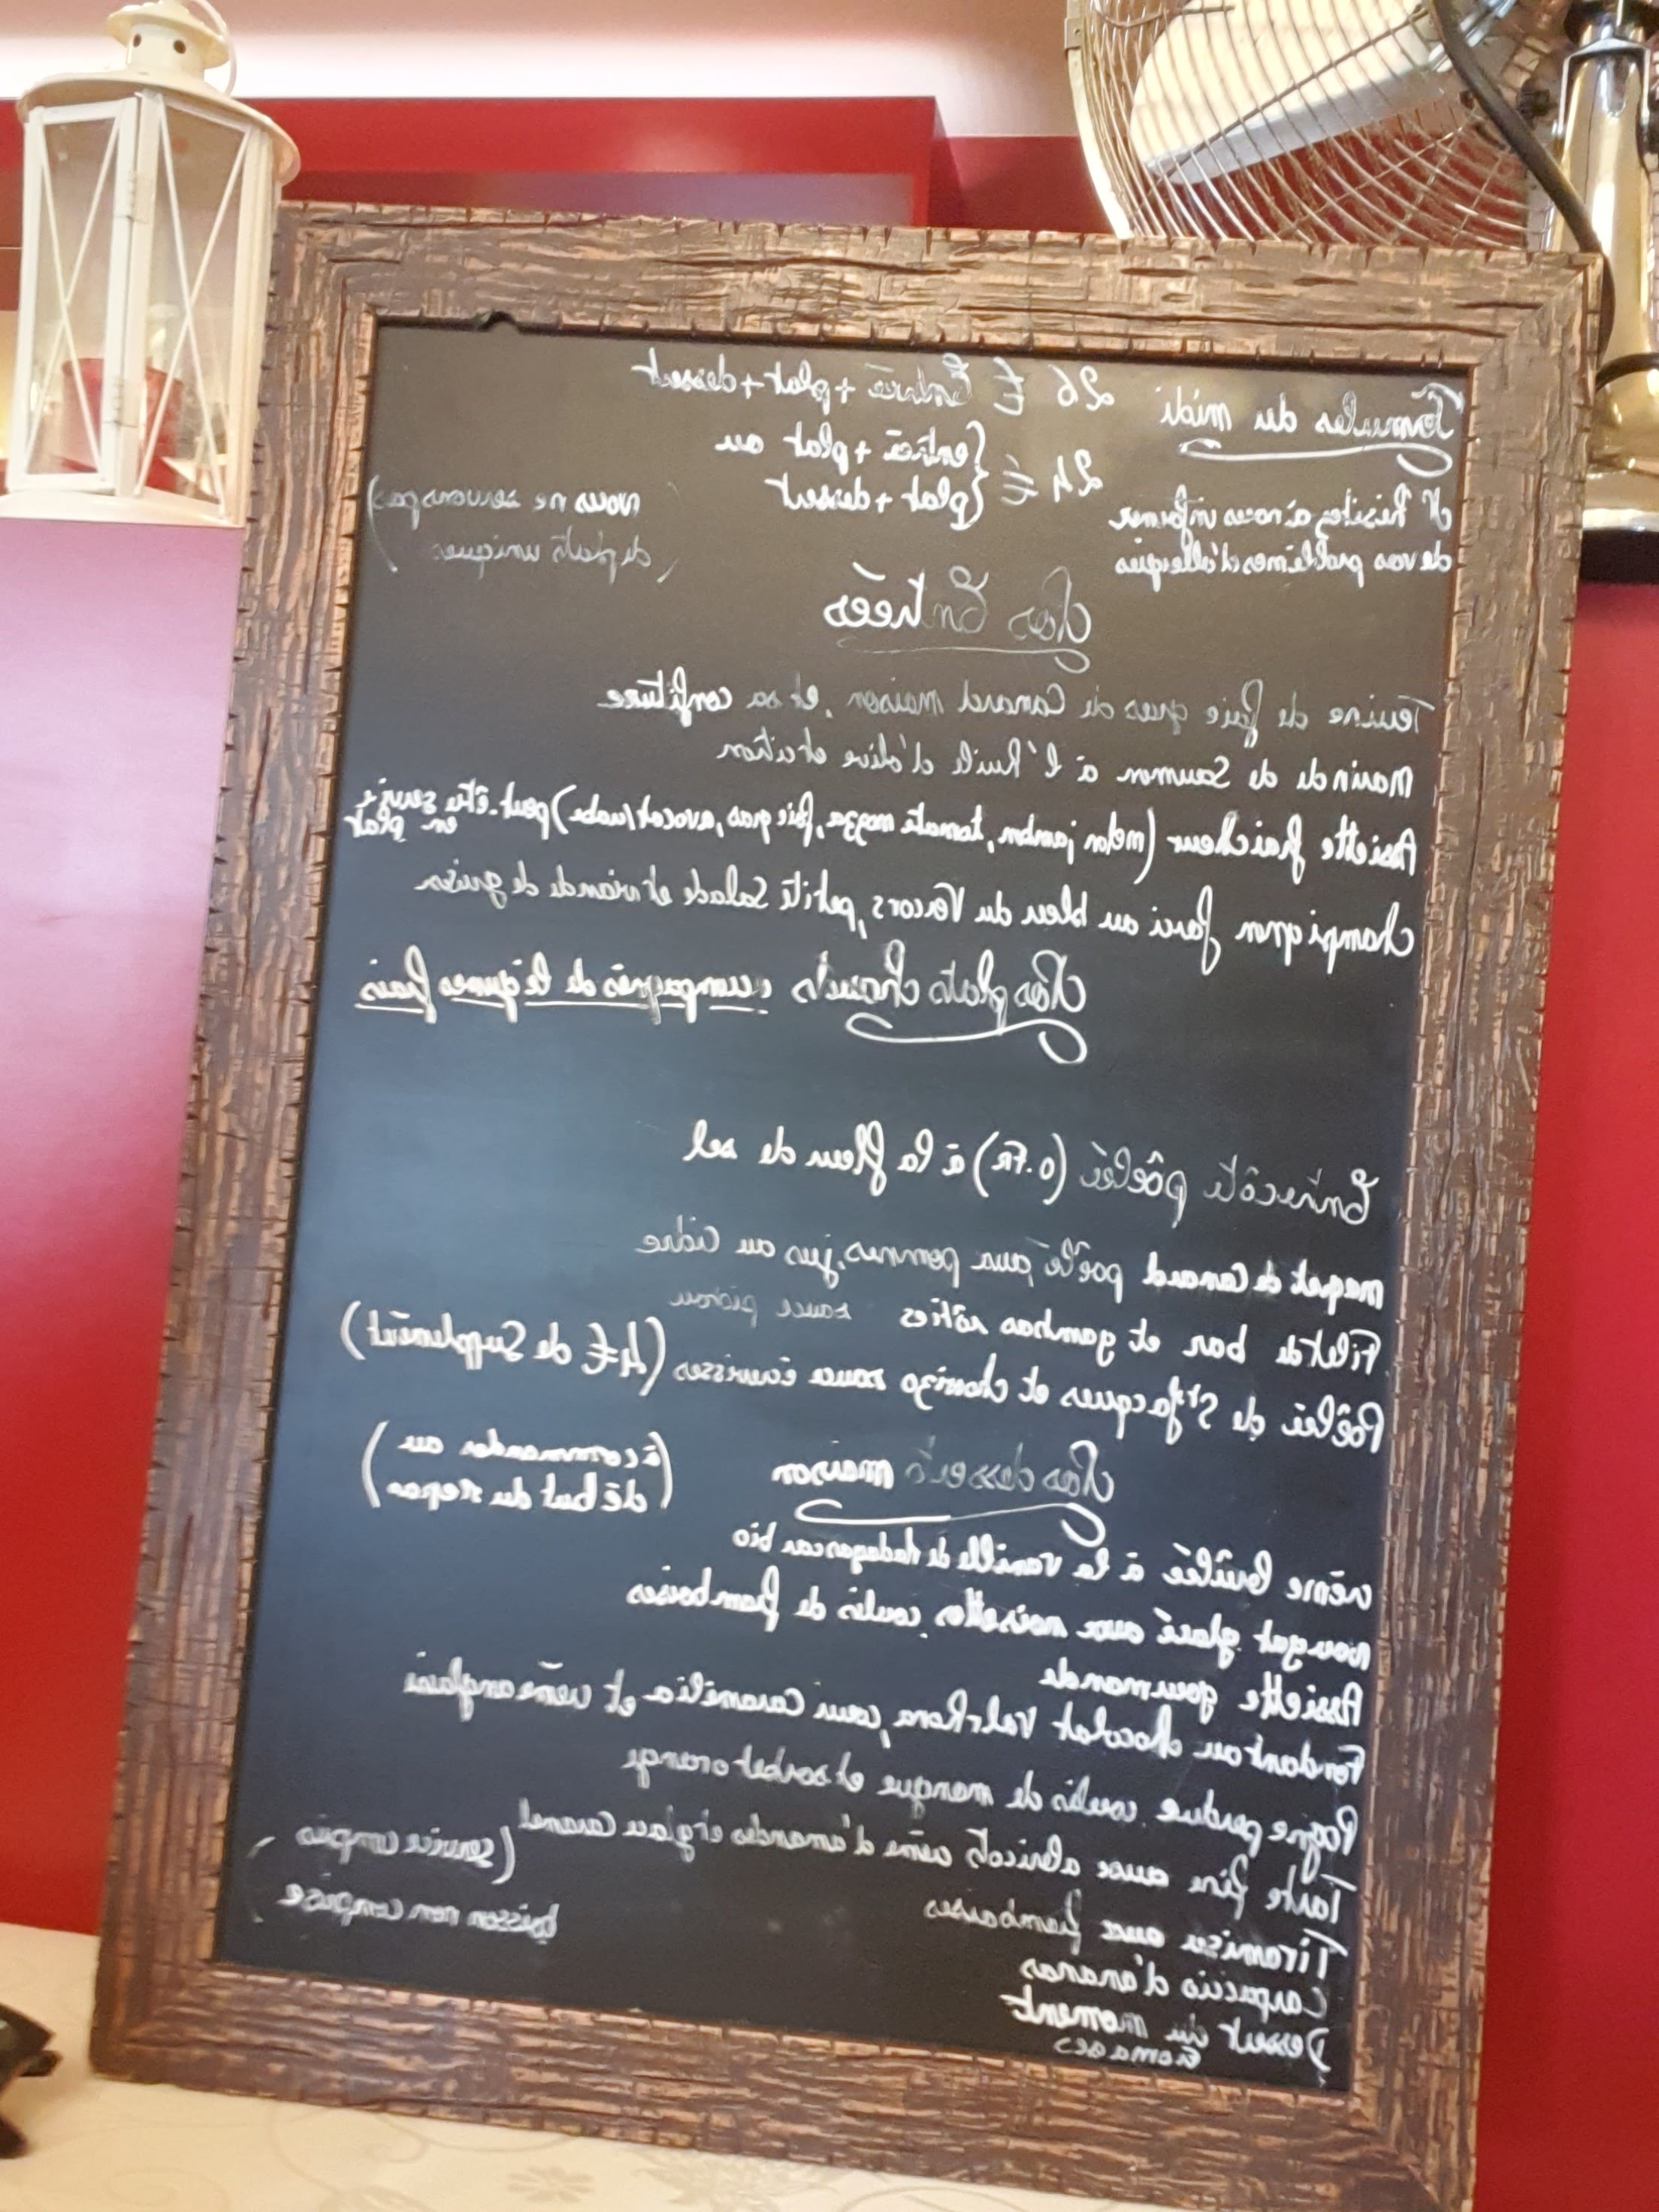 Formules du midi 26 € Entrée + plat + dessert
24 € {entrée + plat ou
{plat + dessert
N'hésitez à nous informer
de vos problèmes d'allergies
(nous ne servons pas)
(de plats uniques)
Nos Entrées
Terrine de foie gras de Canard maison, et sa confiture
Marinde de Saumon à l'huile d'olive et citron
Assiette fraicheur (melon jambon, tomate mozza, foie gras, avocat/crabe) peut-être servie
en plat
Champignon farci au bleu du Vercors, petite Salade et viande de grison
Nos plats chauds accompagnés de légumes frais
Entrecôte pôelée (O.FR) à la fleur de sel
magret de Canard poêlé aux pommes, jus au Cidre
Filet de bar et gambas rôties sauce
Poêlée de St Jacques et chorizo sauce écrevisses (4€ de Supplément)
Nos desserts maison
(à commander au
début du repas)
crème brûlée à la vanille de Madagascar bio
nougat glacé aux noisettes coulis de framboises
Assiette gourmande
Fondant au chocolat Valrhona, cœur Caramélia et crème anglaise
Pogne perdue coulis de mangue et sorbet orange
Tarte fine aux abricots crème d'amandes et glace Caramel
(service compris
boisson non comprise)
Tiramisu aux framboises
Carpaccio d'ananas
Dessert du moment
Fromages